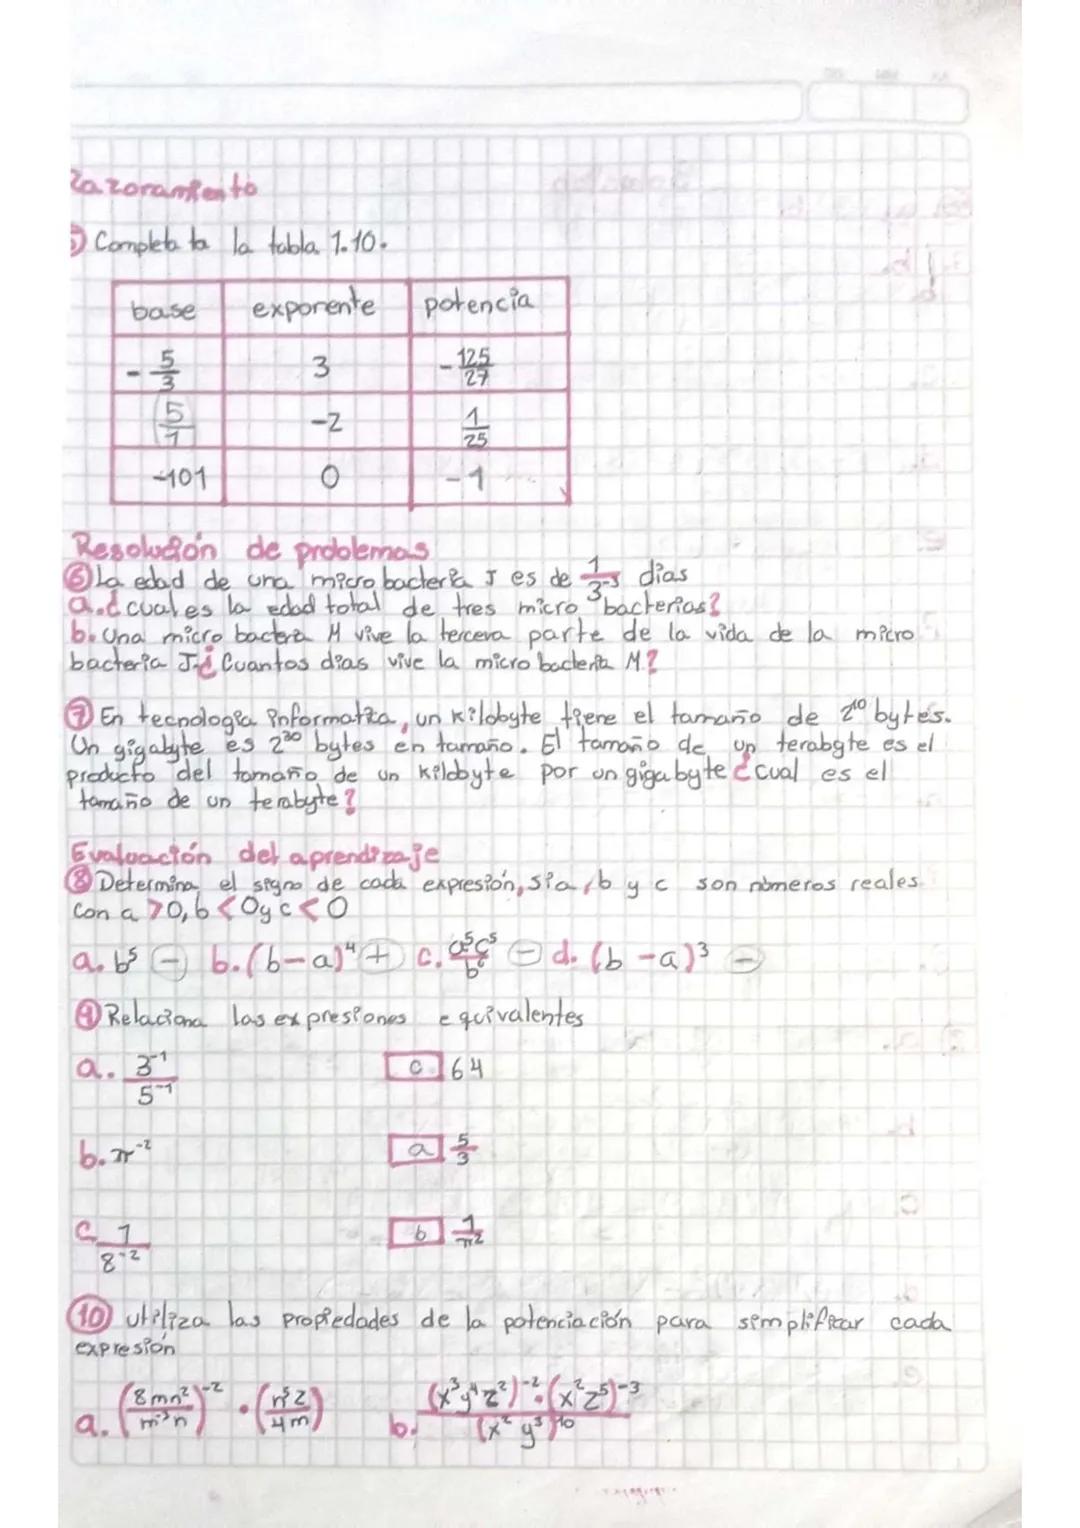 Razonamiento
5) Completa ta la tabla 1.10.
base exponente potencia
-5/3 3 -125/27
5/1 -2 1/25
-101 0 -1
Resolución de problemas
6) La edad de una micro bacteria J es de 1/3⁻⁵ días
a. ¿cual es la edad total de tres micro bacterias?
b. Una micro bactera M vive la tercera parte de la vida de la micro
bacteria J. ¿Cuantos dias vive la micro bacteria M.?
7) En tecnologia informatica, un kilobyte tiene el tamaño de 2¹⁰ bytes.
Un gigabyte es 2³⁰ bytes en tamaño. El tamaño de un terabyte es el
producto del tamaño de un kilobyte por un gigabyte ¿cual es el
tamaño de un terabyte?
Evaluación del aprendizaje
8) Determina el signo de cada expresión, si a, b y c son números reales
Con a >0, b <0 y c <0
a. b⁵ - b. (b-a)⁴ + c. a⁵c⁵/b⁶ - d. (b-a)³ -
9) Relaciona las expresiones equivalentes
a. 3⁻¹/5⁻¹ c 64
b. π⁻² a 5/3
c. 1/8⁻² b 1/π²
10) utiliza las propiedades de la potenciación para simplificar cada
expresión
a. (8mn²/m⁻³n)⁻² · (n⁵z/4m) b. (x³y⁴z²)⁻² · (x²z⁵)⁻³/(x²y³)¹⁰